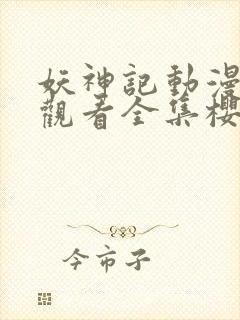 妖神記動漫
觀看全集櫻
今市子